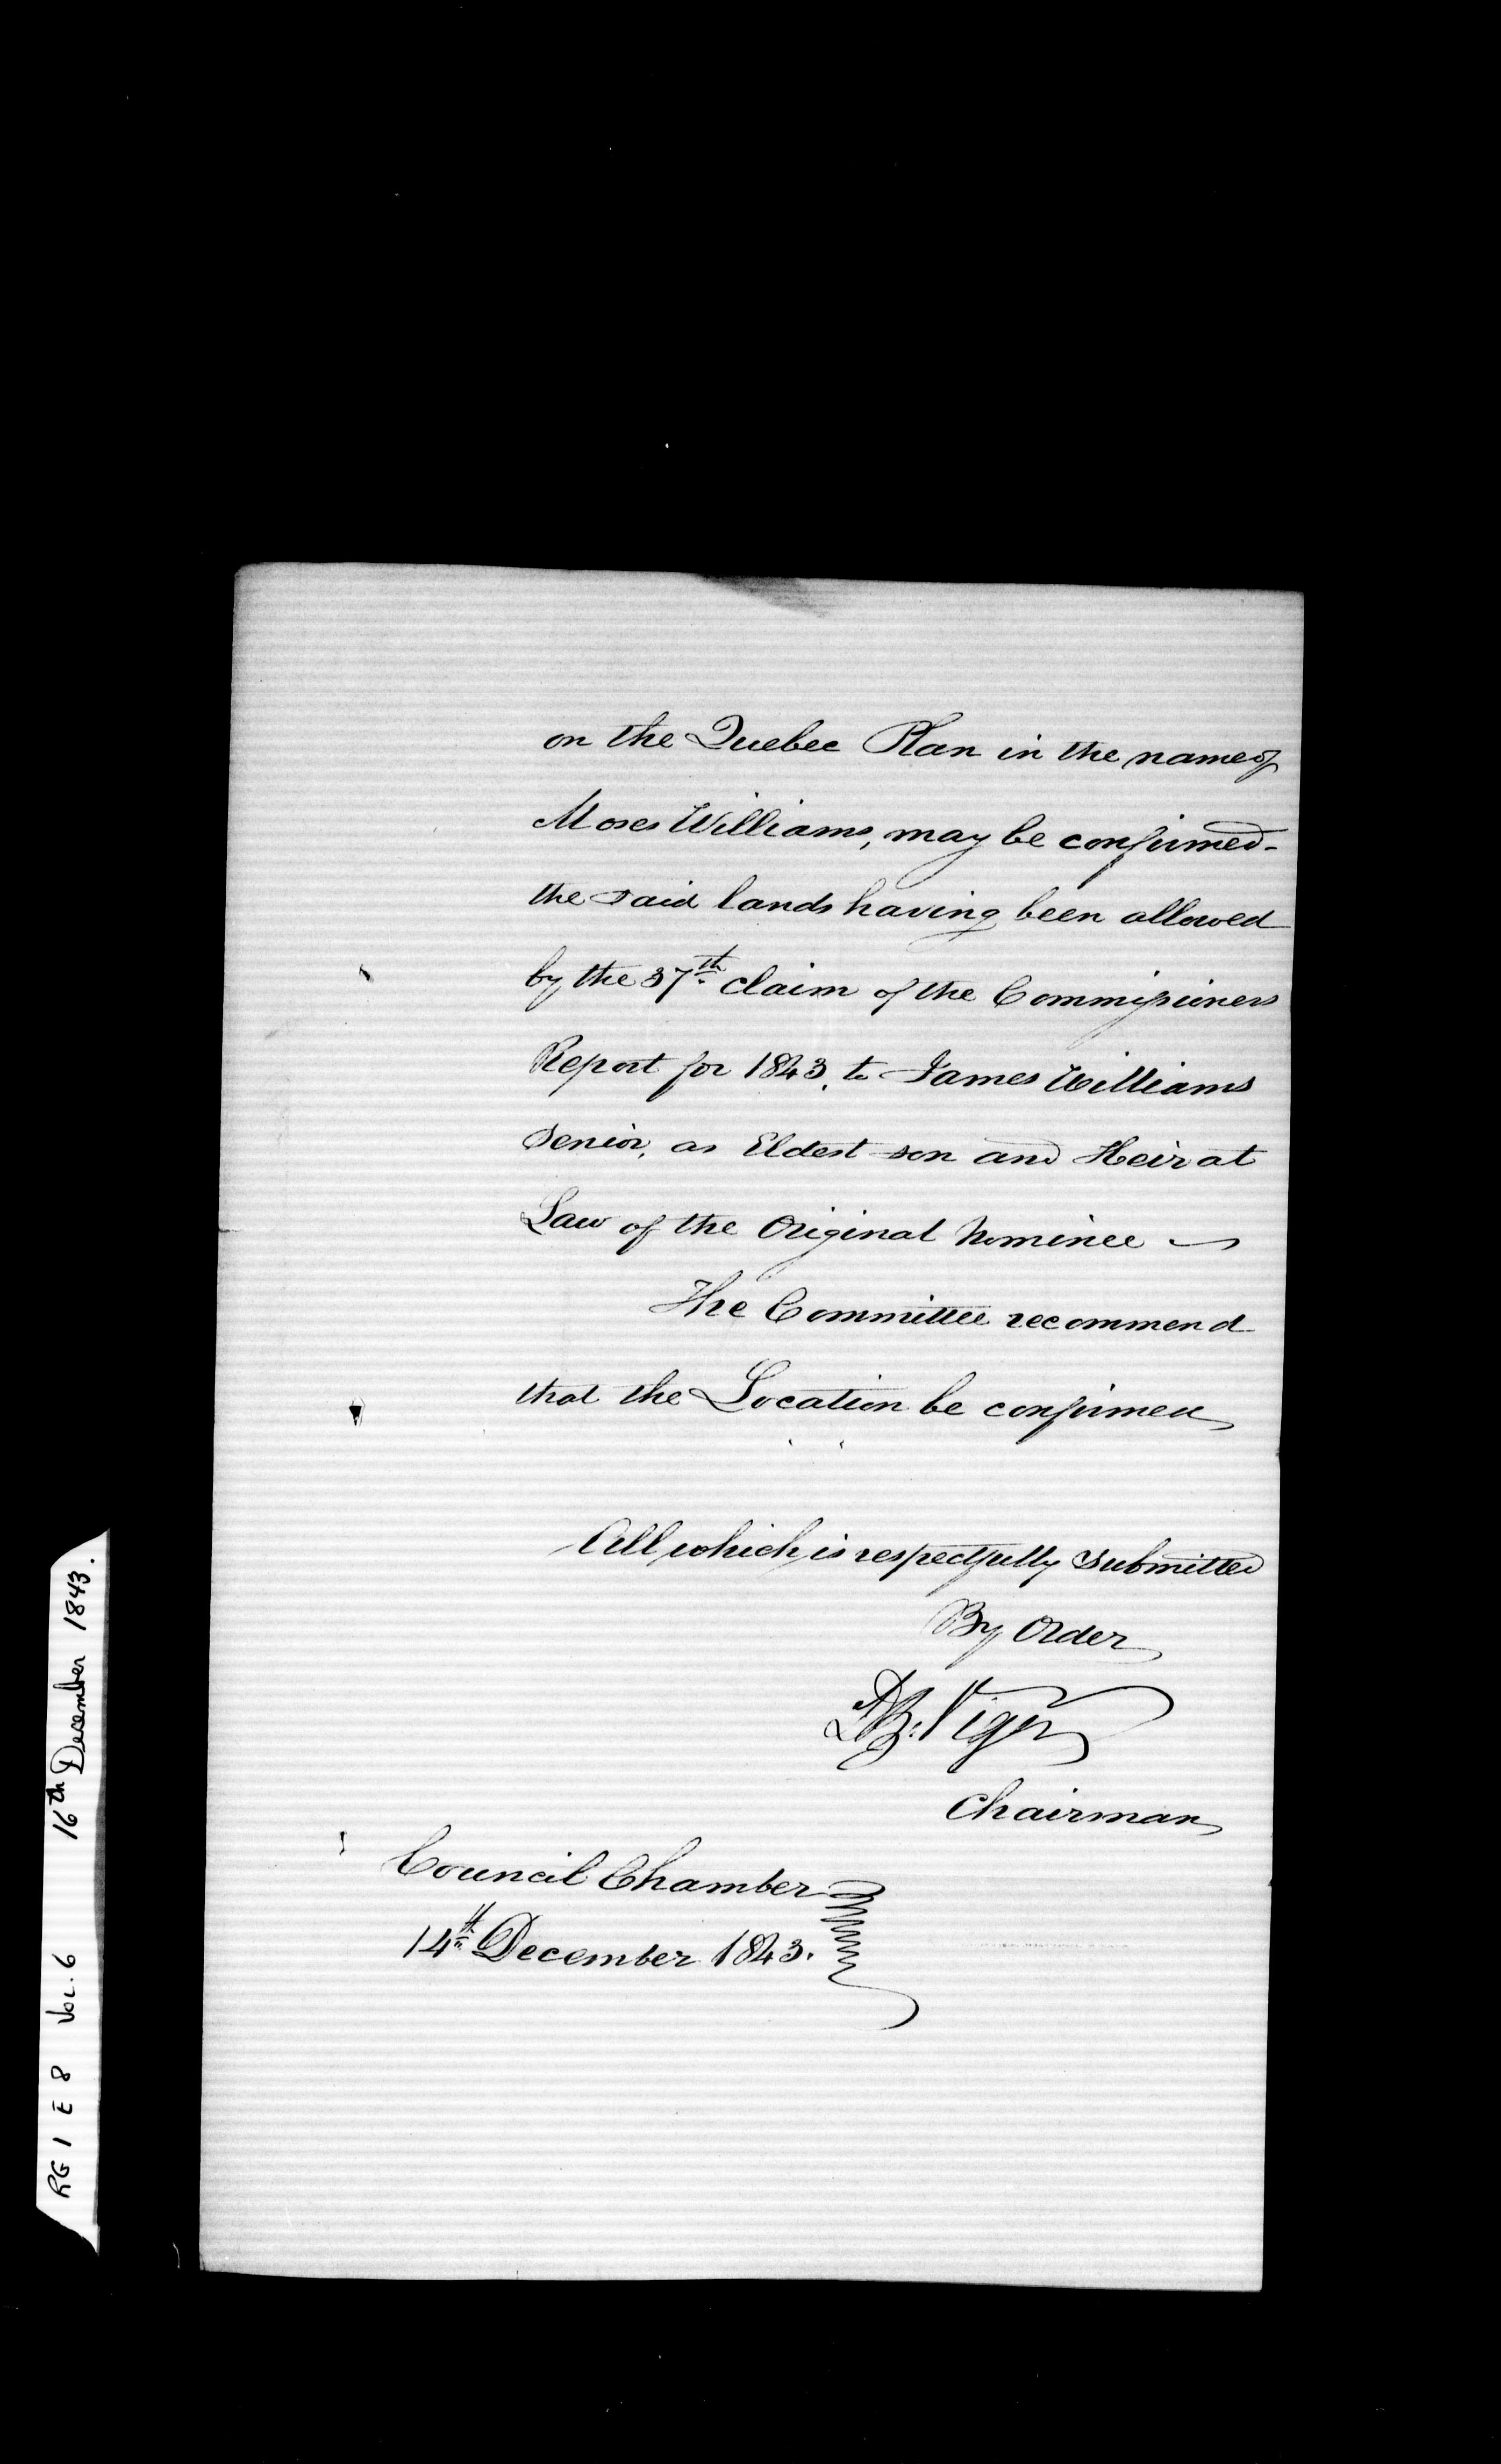 on the Quebec Plan in the name of
Moses Williams, may be confirmed -
the said lands having been allowed
by the 37th claim of the Commissioners
Report for 1843, to James Williams
Senior, as Eldest son and Heir at
Law of the Original Nominee —
The Committee recommend
that the Location be confirmed
All which is respectfully submitted
By Order
D.B. Viger
Chairman
Council Chamber
14th December 1843.
RG 1 E 8 Vol. 6 16th December 1843.